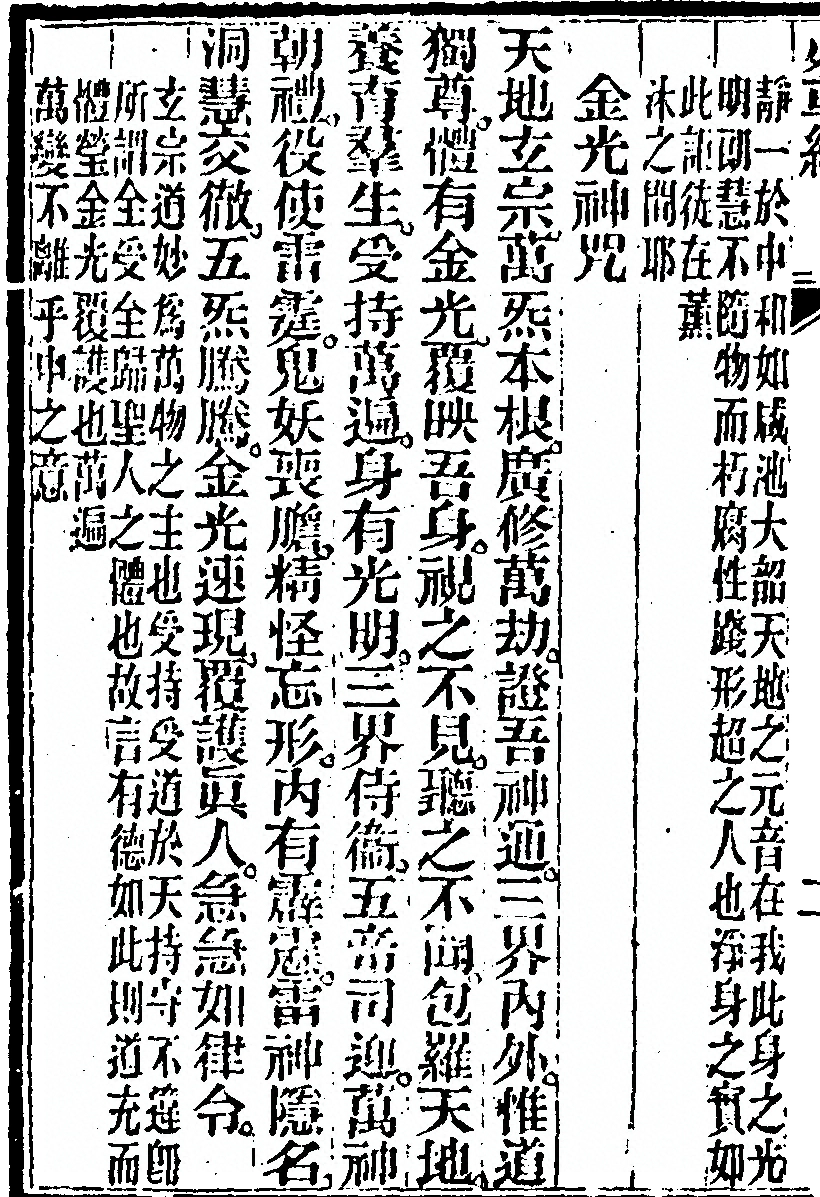 靜一於中和如咸池大韶天地之元音在我此身之光
明朗慧不隨物而朽腐性踐形超之人也淨身之實如
此詎徒在薰
沐之間耶
金光神咒
天地玄宗萬炁本根廣修萬劫證吾神通三界內外惟道
獨尊體有金光覆映吾身視之不見聽之不聞包羅天地
養育羣生受持萬遍身有光明三界侍衞五帝司迎萬神
朝禮役使雷霆鬼妖喪膽精怪忘形內有霹靂雷神隱名
洞慧交徹五炁騰騰金光速現覆護眞人急急如律令
玄宗道妙為萬物之主也受持受道於天持守不違卽
所謂全受全歸聖人之體也故言有德如此則道充而
體瑩金光覆護也萬遍
萬變不離乎中之意